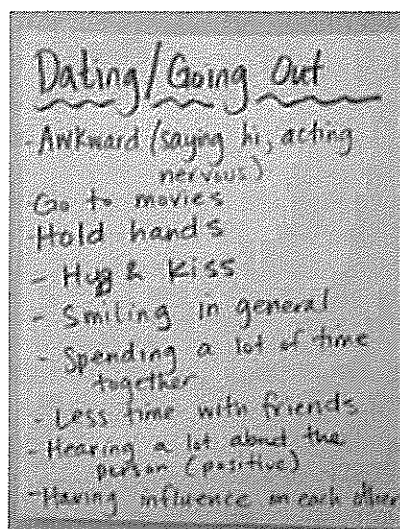 Dating/Going Out
- Awkward (saying hi, acting
nervous)
Go to movies
Hold hands
- Hug & kiss
- Smiling in general
- Spending a lot of time
together
- Less time with friends
- Hearing a lot about the
person (positive)
- Having influence on each other